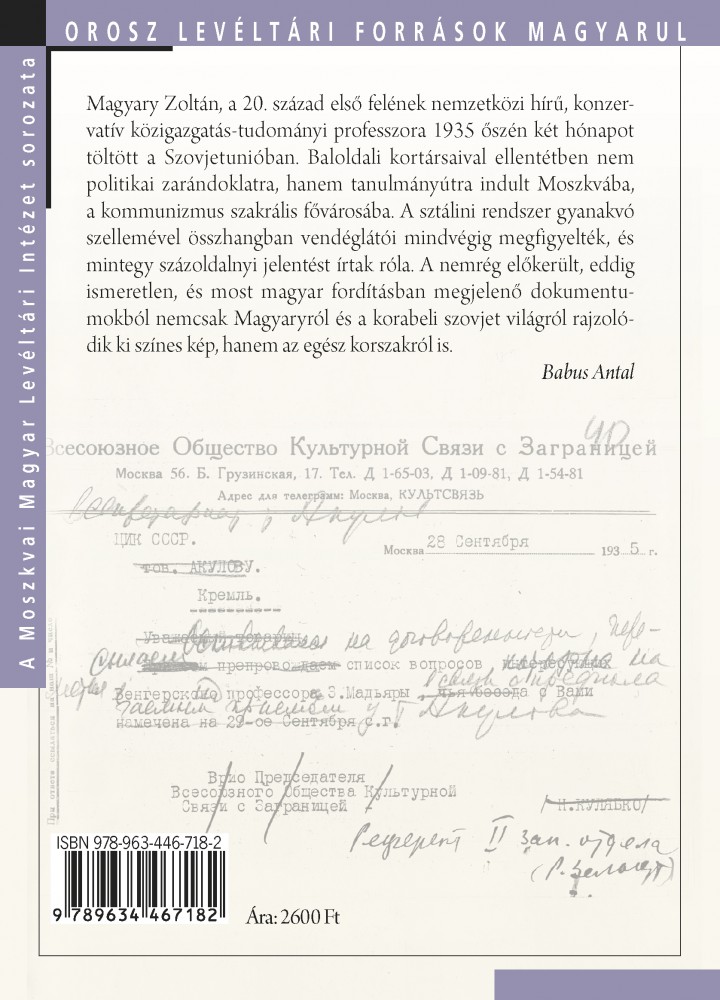 OROSZ LEVÉLTÁRI FORRÁSOK MAGYARUL
A Moszkvai Magyar Levéltári Intézet sorozata
Magyary Zoltán, a 20. század első felének nemzetközi hírű, konzer-
vatív közigazgatás-tudományi professzora 1935 őszén két hónapot
töltött a Szovjetunióban. Baloldali kortársaival ellentétben nem
politikai zarándoklatra, hanem tanulmányútra indult Moszkvába,
a kommunizmus szakrális fővárosába. A sztálini rendszer gyanakvó
szellemével összhangban vendéglátói mindvégig megfigyelték, és
mintegy százoldalnyi jelentést írtak róla. A nemrég előkerült, eddig
ismeretlen, és most magyar fordításban megjelenő dokumentu-
mokból nemcsak Magyaryról és a korabeli szovjet világról rajzoló-
dik ki színes kép, hanem az egész korszakról is.
Babus Antal
Всесоюзное Общество Культурной Связи с Заграницей
Москва 56. Б. Грузинская, 17. Тел. Д 1-65-03, Д 1-09-81, Д 1-54-81
Адрес для телеграмм: Москва, КУЛЬТСВЯЗЬ
ЦИК СССР.
Москва 28 Сентября 1935 г.
тов. АКУЛОВУ.
Кремль.
на договоренности, пере-
препровождаем список вопросов
Венгерского профессора З.Мадьяры с Вами
намечена на 29-ое Сентября с.г.
Врио Председателя
Всесоюзного Общества Культурной
Связи с Заграницей
/Н.КУЛЯБКО/
Референт II Зап. отдела
ISBN 978-963-446-718-2
9 789634 467182
Ára: 2600 Ft